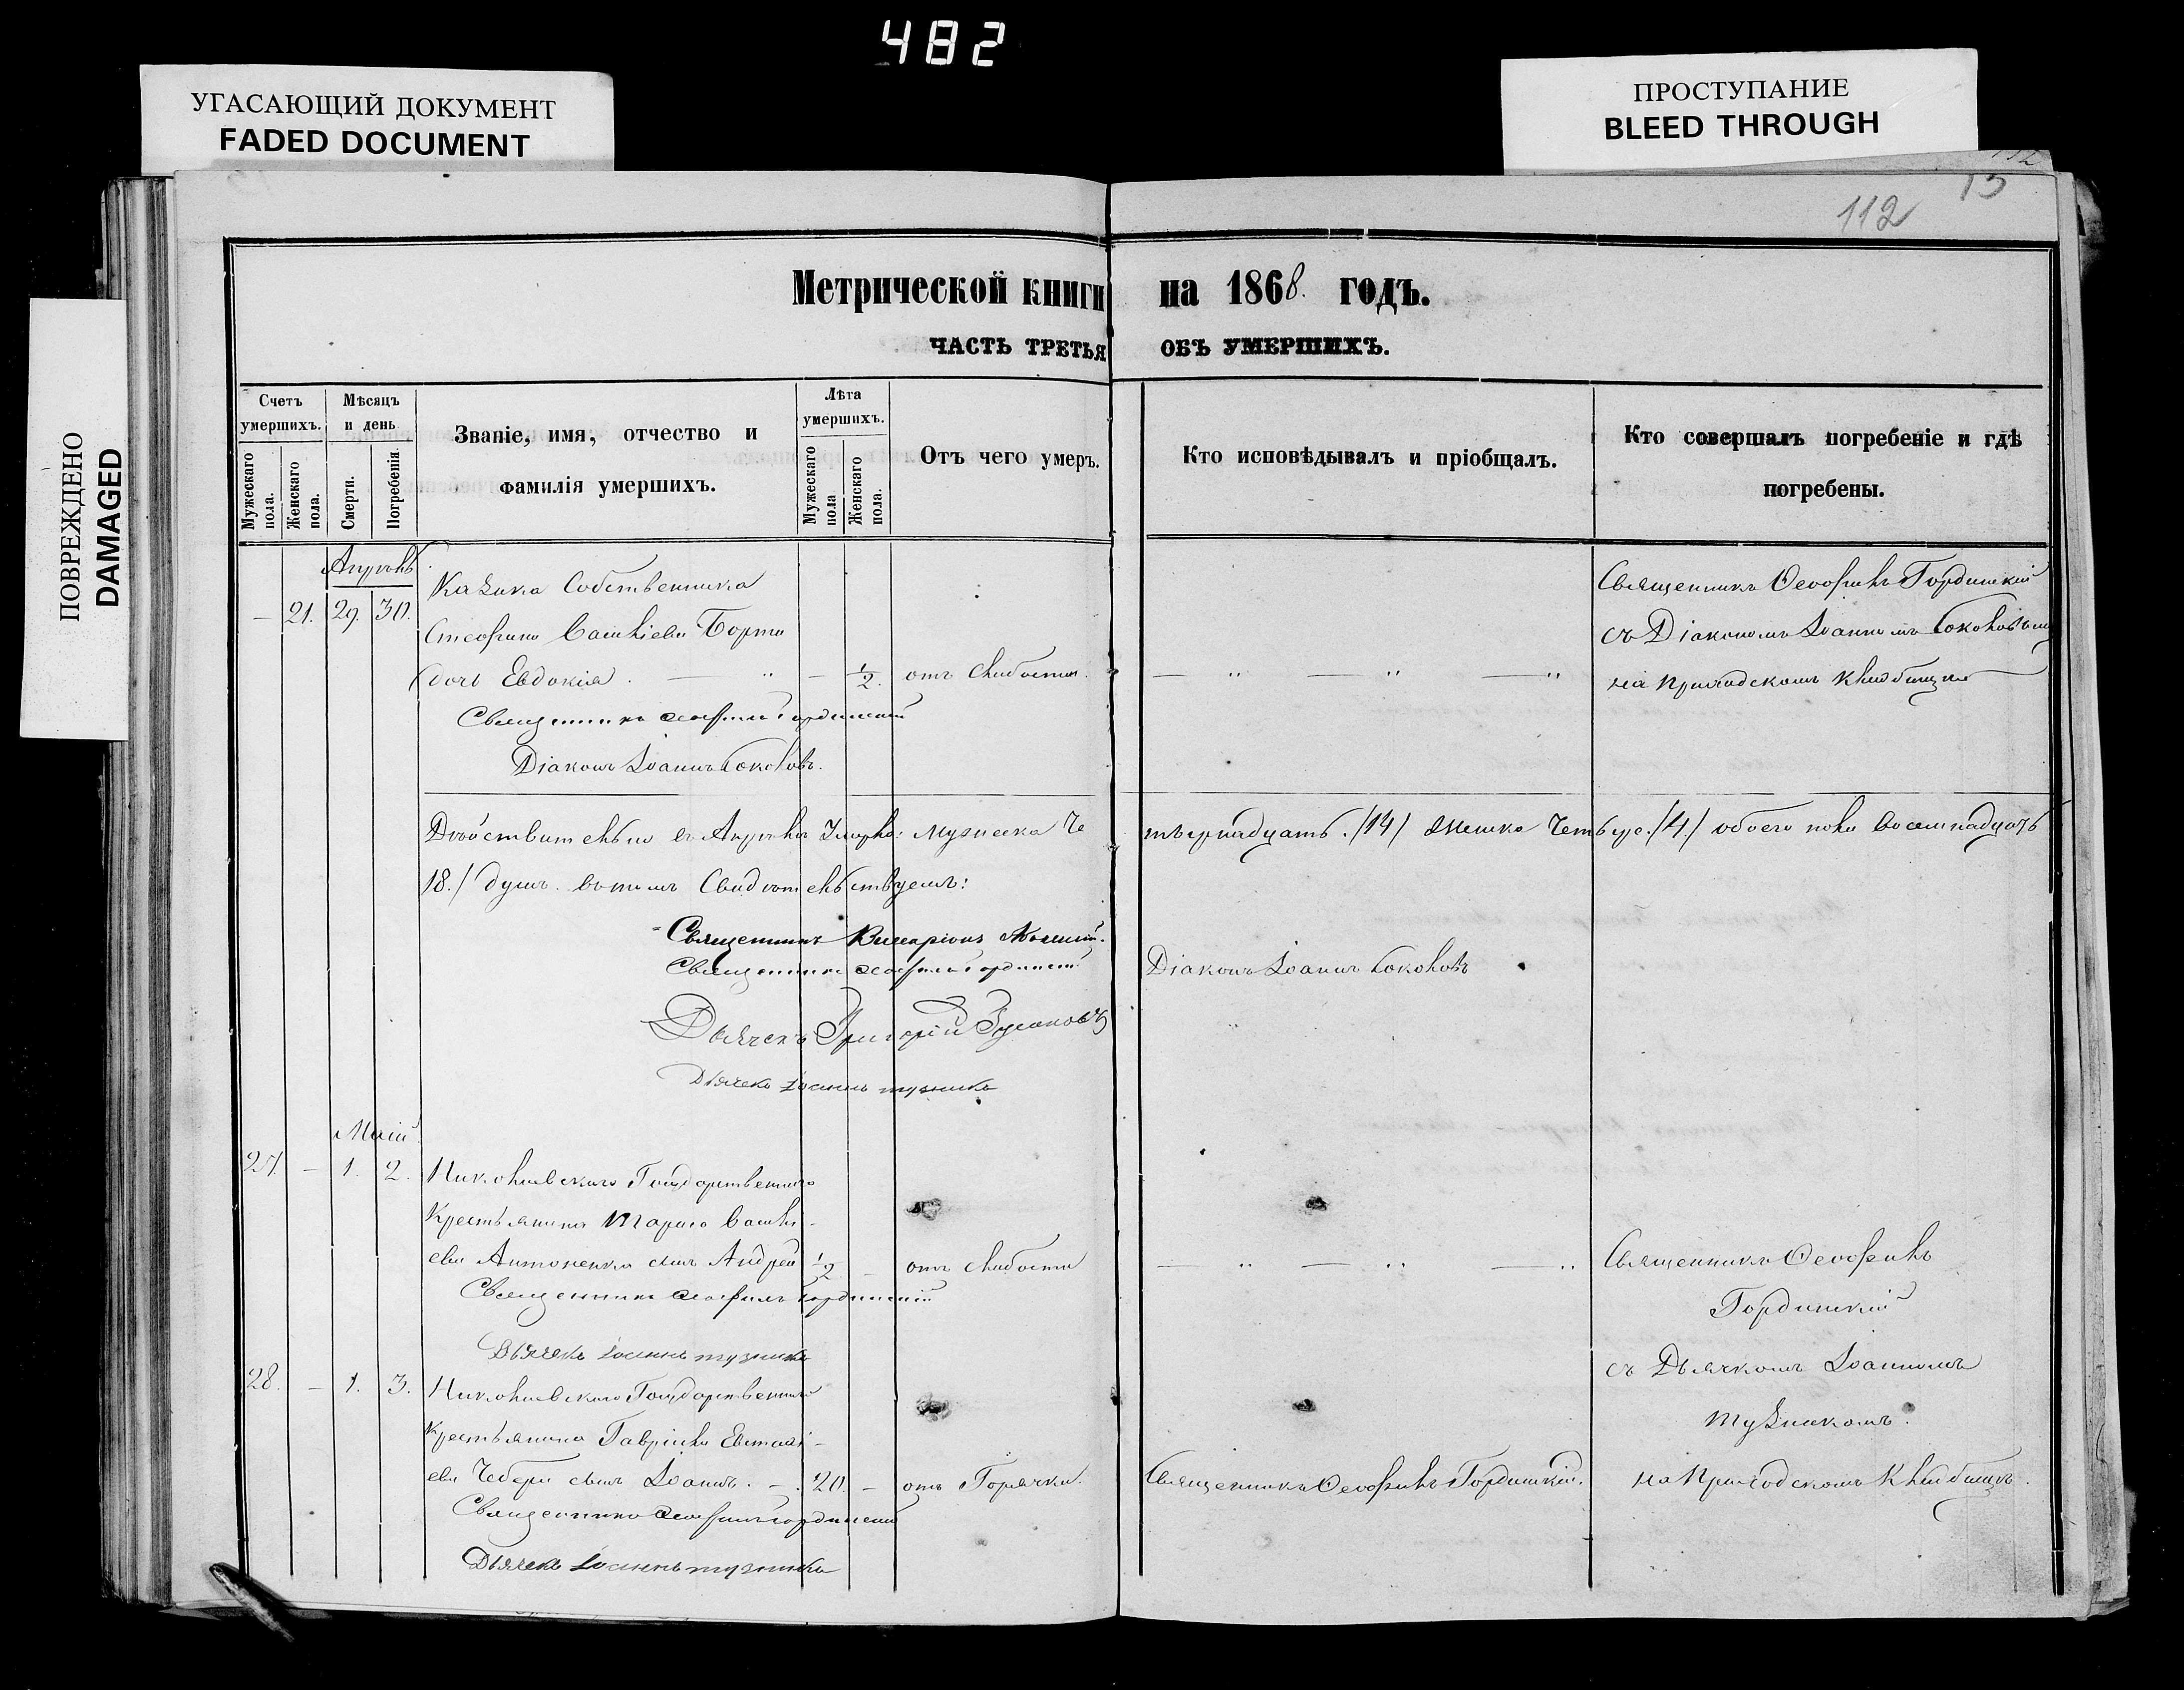 482
УГАСАЮЩИЙ ДОКУМЕНТ
FADED DOCUMENT
ПРОСТУПАНИЕ
BLEED THROUGH
ПОВРЕЖДЕНО
DAMAGED
112
13
Метрической книги на 1868. годъ.
ЧАСТЬ ТРЕТЬЯ ОБЪ УМЕРШИХЪ.
Счетъ умершихъ.
Мужескаго пола.
Женскаго пола.
Мѣсяцъ и день
Смерти.
Погребенія.
Званіе, имя, отчество и фамилія умершихъ.
Лѣта умершихъ.
Мужескаго пола
Женскаго пола.
Отъ чего умеръ.
Кто исповѣдывалъ и пріобщалъ.
Кто совершалъ погребеніе и гдѣ погребены.
Апрѣль
— 21. 29. 30.
Казака Собственника
Стефана Савельева Борта
дочь Евдокія. — " — 1/2. отъ слабости. — " — " — "
Священникъ Ѳеофилъ Гординскій
съ Діакономъ Іоанномъ Соколовымъ
на приходскомъ кладбищѣ
Священникъ Ѳеофилъ Гординскій
Діаконъ Іоаннъ Соколовъ.
Дѣйствительно въ Апрѣлѣ Умерло: мужеска Четырнадцать. /14/ женска Четыре. /4/ обоего пола восемнадцать
18./ душъ. въ томъ Свидѣтельствуемъ:
Священникъ
Священникъ Ѳеофилъ Гординскій
Діаконъ Іоаннъ Соколовъ
Дьячекъ Григорій
Дьячекъ Іоаннъ Тузникъ
Маій
27. — 1. 2. Николаевскаго Государственнаго
Крестьянина Тараса Савель-
ева Антоненка сынъ Андрей 1/2 — отъ слабости — " — " — "
Священникъ Ѳеофилъ Гординскій
Дьячекъ Іоаннъ Тузникъ
Священникъ Ѳеофилъ
Гординскій
съ Дьячкомъ Іоанномъ
Тузникомъ.
на Приходскомъ Кладбищѣ.
28. — 1. 3. Николаевскаго Государственнаго
Крестьянина Гавріила Евстаѳі-
ева Чебери сынъ Іоаннъ. — 20. — отъ Горячки. Священникъ Ѳеофилъ Гординскій.
Священникъ Ѳеофилъ Гординскій
Дьячекъ Іоаннъ Тузникъ